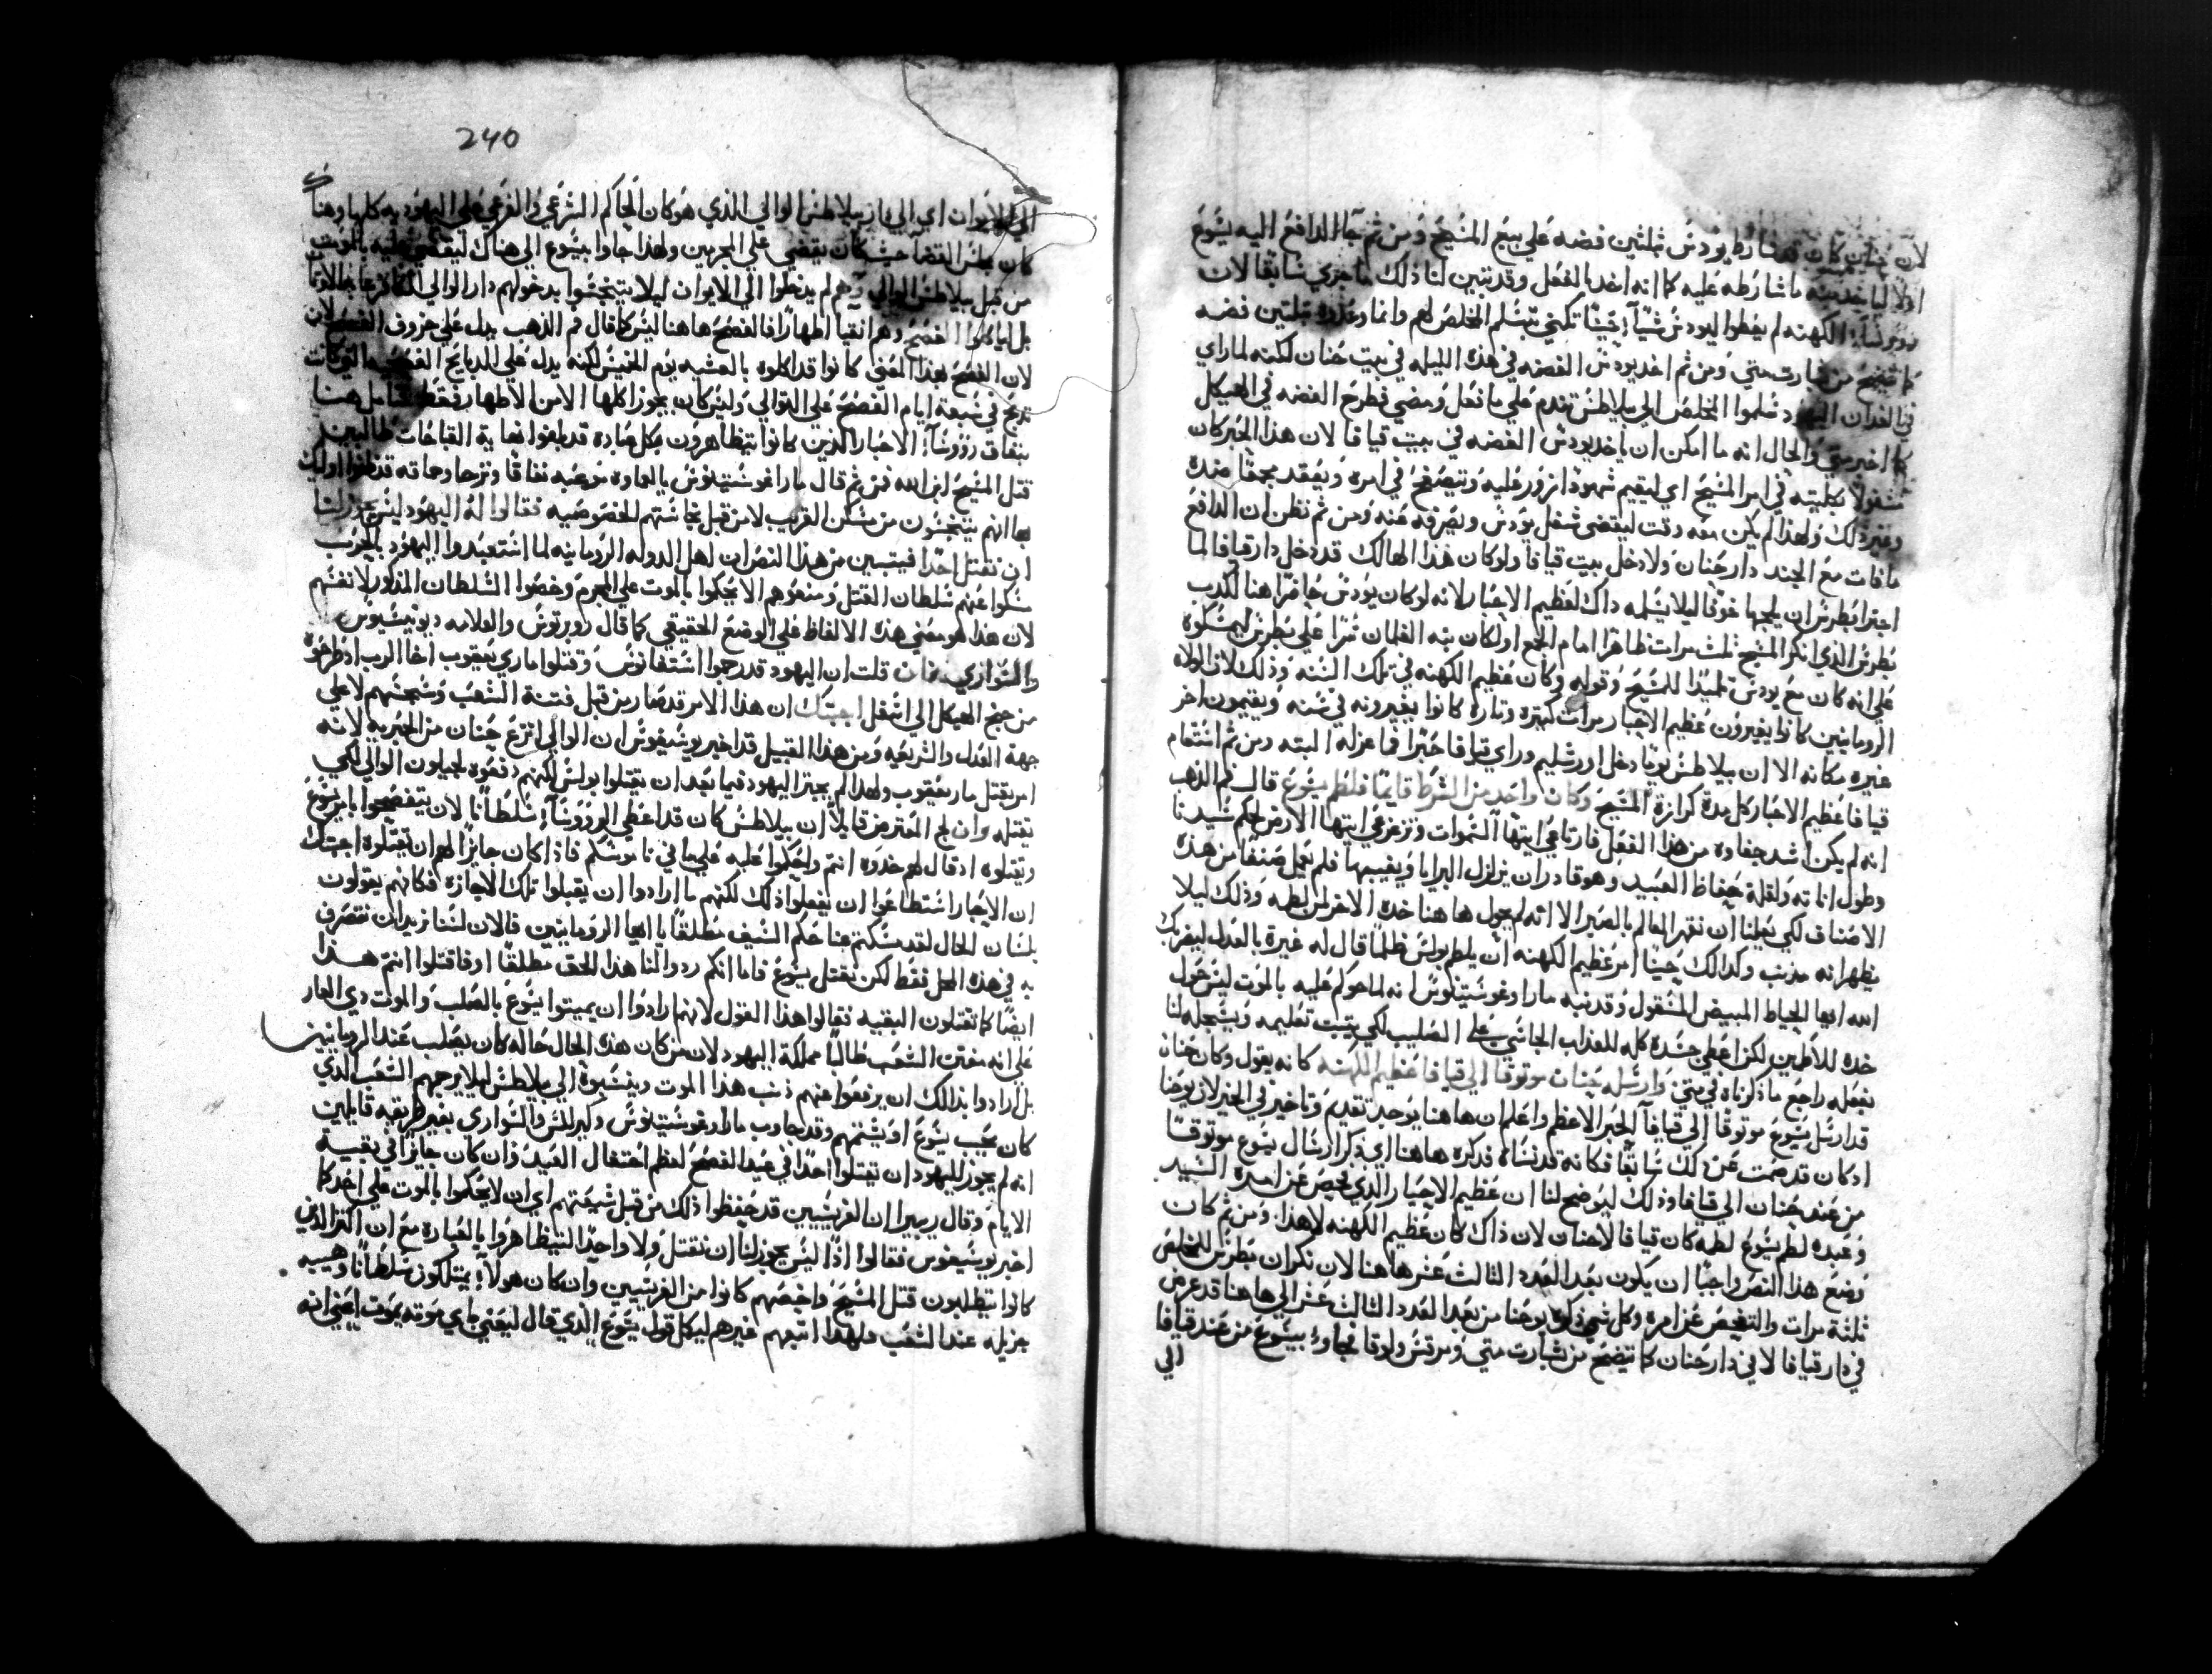 لان حنان كان قد شارط يودس بثلثين فضه على بيع المسيح ومن ثم جآ الدافع اليه يسوع
اولا لياخد منه ما شارطه عليه كما انه اخد بالفعل وقد تبين لنا ذلك ما جري سابقا لان
روورسآ الكهنه لم يعطوا ليودس شيآ حينا تكني بتسلم المخلص لهم وانما وعدوه بثلتين فضه
كما يتضح من بشارت متي ومن ثم اخد يودس الفضه في هذه الليله في بيت حنان لكنه لما راي
في الغدان اليهود سلموا المخلص الي بيلاطس تندم علي ما فعل ومضي فطرح الفضه في الهيكل
كما اخبر متي والحال انه ما امكن ان ياخد يودس الفضه في بيت قيافا لان هذا الحبر كان
مشغولا بكليته في امر المسيح اي ليقيم شهودا زور عليه ويتصفح في امره ويعقد مجمعا ضده
وغير ذلك ولهذا لم يكن معه وقت ليقضي شغل يودس ويصرفه عنه ومن ثم نظن ان الدافع
ما فات مع الجند دار حنان ولا دخل بيت قيافا ولو كان هذا الهالك قد دخل دار قيافا لما
اجترا بطرس ان يلجها خوفا ليلا يسلمه داك لعظيم الاحبار لانه لو كان يودس حاضرا هنا لكدب
بطرس الذي انكر المسيح ثلث مرات ظاهرا امام الجمع او لكان نبه الغلمان سرا علي بطرس ليمسكوه
علي انه كان مع يودس تلميدا للمسيح وقوله وكان عظيم الكهنه في تلك السنه وذلك لان الولاه
الرومانيين كانوا يغيرون عظيم الاحبار مرات كتيره وتاره كانوا يغيرونه في سنه ويقيمون اخر
غيره مكانه الا ان بيلاطس يوما دخل اورشليم وراي قيافا حبرا فما عزله البته ومن ثم استقام
قيافا عظيم الاحبار كل مدة كرازة المسيح وكان واحد من الشرط قايما فلطم يسوع قال فم الذهب
انه لم يكن اشد جفاوه من هذا الفعل فارتاعي ايتها السموات وتزعزعي ايتها الارض لحكم سيدنا
وطول اناته ولقلة حفاظ العبيد وهو قادر ان يزلزل البرايا ويغيبها فلم يعمل صنفا من هذه
الاصناف لكي يعلمنا ان نقهر العالم بالصبر الا انه لم يحول هاهنا خده الاخر لمن لطمه وذلك ليلا
يظهر انه مدنب وكدالك حينا امر عظيم الكهنه ان يلطم بولس ظلما قال له غيرة بالعدل ليضربك
الله ايها الحياط المبيض المشغول وقد نبه مار اوغوستينوس انه لما حوكم عليه بالموت ليس حول
خده للاطمين لكن اعطي جسده كله للعذاب الجاشي علي الصليب لكي يتبت تعليمه ويسجله لنا
بفعله راجع ما ذكرناه في متي وارسله حنان موتوقا الي قيافا عظيم الكهنه كانه يقول وكان حنان
قد ارسل يسوع موتوقا الي قيافا الحبر الاعظم واعلم ان هاهنا يوجد تقديم وتاخير في الخبر لان يوحنا
اد كان قد صمت عن ذلك سابقا فكانه قد نساه فدكره هاهنا اي ذكر ارسال يسوع موتوقا
من عند حنان الي قيافا وذلك ليوضح لنا ان عظيم الاحبار الذي فحص عن امره السيد
وعبده لطم يسوع لطمه كان قيافا لا حنان لان ذاك كان عظيم الكهنه لا هذا ومن ثم كان
يضع هذا النص واجبا ان يكون بعد العدد الثالث عشر هاهنا لان نكران بطرس للمخلص
ثلثة مرات والتفحص عن امره وكل شي ذكره يوحنا من بعد العدد الثالث عشر الي هاهنا قد عرض
في دار قيافا لا في دار حنان كما يتضح من بشارت متي ومرقس ولوقا فجاوا بيسوع من عند قيافا
الي
240
الي الايوان اي الي دار بيلاطس الوالي الذي هو كان الحاكم الشرعي والفرعي علي اليهوديه كلها وهنا
كان مجلس القضا حيث كان يقضي علي المجرمين ولهذا جاوا بيسوع الي هناك ليقضي عليه بالموت
من قبل بيلاطس الوالي وهم لم يدخلوا الي الايوان ليلا يتنجسوا بدخولهم دار الوالي
بل لياكلوا الفصح وهم انقيا اطهارا فالفصح هاهنا ليس كما قال فم الذهب يدل علي خروف الفصح
لان الفصح بهذا المعني كانوا قد اكلوه بالعشيه يوم الخميس لكنه يدل علي الدبايح الفصحيه التي كانت
تدبح في سبعة ايام الفصح علي التوالي وليس كان يجوز اكلها الا من الاطهار فقط فتامل هنا
بنفاق روورسآ الاحبار الدين كانوا يتظاهرون بكل عباده قد بلغوا نهاية القباحات طالبين
قتل المسيح ابن الله فمن ثم قال مار اغوستينوس
بها انهم يتنجسون من مسكن الغريب لا من قبل نجاستهم الخصوصيه فقالوا له اليهود ليس يجوز لنا
ان نقتل احدا فيتبين من هذا النص ان اهل الدوله الرومانيه لما استعبدوا اليهود بالحرب
مسكوا عنهم سلطان القتل ومنعوهم الا يحكموا بالموت علي المجرم وخصوا السلطان المدكور لانفسهم
لان هذا هو معني هذه الالفاظ علي الوضع الحقيقي كما قال روبرتوس والعلامه ديونيسيوس
والسواري فان قلت ان اليهود قد رجموا استفانوس وقتلوا ماري يعقوب اخا الرب اد طرحوه
من جنح الهيكل الي اسفل اجبتك ان هذا الامر قد صار من قبل فتنة الشعب وسجسهم لا علي
جهة العدل والشريعه ومن هذا القبيل قد اخبر يوسيفوس ان الوالي انتزع حنان من الحبريه لانه
امر بقتل مار يعقوب ولهذا لم يجيز اليهود فيما بعد ان يقتلوا بولس لكنهم دفعوه لحيلون الوالي لكي
يقتله وان لج المعترض قايلا ان بيلاطس كان قد اعطي الروورسآ سلطانا لان
ويقتلوه اد قال لهم خدوه انتم واحكموا عليه علي ما في ناموسكم فاذا كان جايزا لهم ان يقتلوه اجبتك
ان الاحبار استطاعوا ان يفعلوا ذلك لكنهم ما ارادوا ان يقبلوا تلك الاجازه فكانهم يقولون
بلسان الحال لقد مسكتم عنا حكم السيف مطلقا يا ايها الرومانيين فالان لسنا نريد ان نتصرف
به في هذه العمل فقط لكن نقتل يسوع فاما انكم ردوا لنا هذا الحق مطلقا او فاقتلوا انتم هذا
ايضا كما تقتلون البقيه فقالوا هذا القول لانهم ارادوا ان يميتوا يسوع بالصلب والموت دي العار
علي انه مفتن الشعب طالبا مملكة اليهود لان من كان هذه الحال حاله كان يصلب عند الرومانيين
بل ارادوا بذالك ان يرفعوا عنهم ذنب هذا الموت وينسبوه الي بيلاطس ليلا يرجمهم الشعب الذي
كان يحب يسوع او يشتمهم وقد جاوب مار اوغوستينوس وكيرللس والسواري بغير طريقه قايلين
انه لم يجوز لليهود ان يقتلوا احدا في عيد الفصح لعظم احتفال العيد وان كان جايزا في بقية
الايام وقال ريبيرا ان الفريسيين قد حفظوا ذلك من قبل شيعتهم اي ان لا يحكموا بالموت علي احد كما
اخبر يوسيفوس فقالوا اذا ليس يجوز لنا ان نقتل ولا واحدا ليتظاهروا بالعباره مع ان اكتر الذين
كانوا يتطلبون قتل المسيح واخصهم كانوا من الفريسيين وان كان هولاء يمتلكون سلطانا وهيبه
جزيله عند الشعب فلهدا اتبعهم غيرهم ليكمل قول يسوع الذي قال ليعني باي موته يموت يعني انه